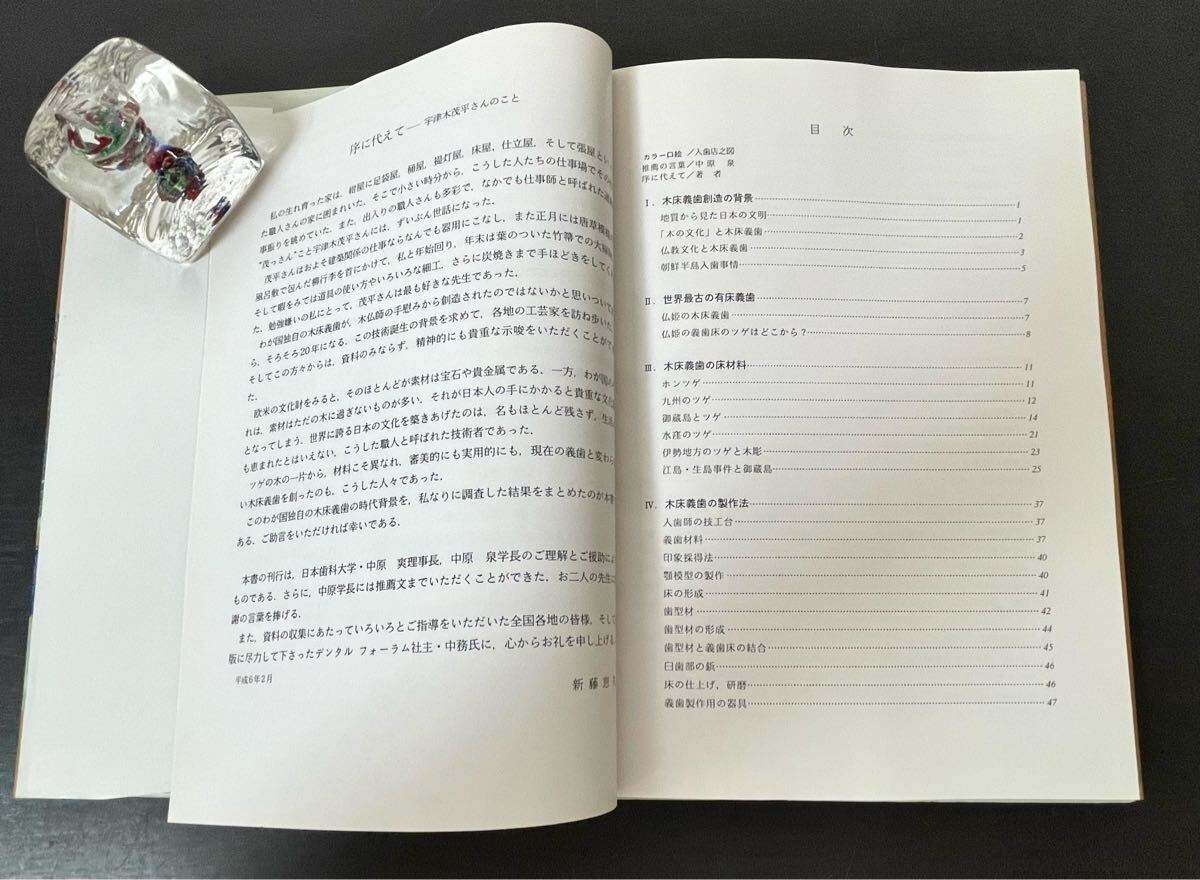 序に代えて――宇津木茂平さんのこと
私の生れ育った家は，紺屋に足袋屋，桶屋，提灯屋，床屋，仕立屋，そして張屋とい
た職人さんの家に囲まれいた．そこで小さい時分から，こうした人たちの仕事場でその
事振りを眺めていた．また，出入りの職人さんも多彩で，なかでも仕事師と呼ばれた
“茂っさん”こと宇津木茂平さんには，ずいぶん世話になった．
茂平さんはおよそ建築関係の仕事ならなんでも器用にこなし，また正月には唐草模様
風呂敷で包んだ柳行李を首にかけて，私と年始回り，年末は葉のついた竹箒での大掃
そして暇をみては道具の使い方やいろいろな細工，さらに炭焼きまで手ほどきをしてく
た．勉強嫌いの私にとって，茂平さんは最も好きな先生であった．
わが国独自の木床義歯が，木仏師の手慰みから創造されたのではないかと思いついて
ら，そろそろ20年になる．この技術誕生の背景を求めて，各地の工芸家を訪ね歩いた
そしてこの方々からは，資料のみならず，精神的にも貴重な示唆をいただくことがで
た．
欧米の文化財をみると，そのほとんどが素材は宝石や貴金属である．一方，わが国の
れは，素材はただの木に過ぎないものが多い．それが日本人の手にかかると貴重な文
となってしまう．世界に誇る日本の文化を築きあげたのは，名もほとんど残さず，生活
も恵まれたとはいえない，こうした職人と呼ばれた技術者であった．
ツゲの木の一片から，材料こそ異なれ，審美的にも実用的にも，現在の義歯と変わら
い木床義歯を創ったのも，こうした人々であった．
このわが国独自の木床義歯の時代背景を，私なりに調査した結果をまとめたのが本書
ある．ご助言をいただければ幸いである．
本書の刊行は，日本歯科大学・中原　爽理事長，中原　泉学長のご理解とご援助によ
ものである．さらに，中原学長には推薦文までいただくことができた．お二人の先生に
謝の言葉を捧げる．
また，資料の収集にあたっていろいろとご指導をいただいた全国各地の皆様，そして
版に尽力して下さったデンタル フォーラム社主・中務氏に，心からお礼を申し上げる．
平成6年2月
新藤恵
目　次
カラー口絵 ／入歯店之図
推薦の言葉／中 原　泉
序に代えて／著　者
Ⅰ．木床義歯創造の背景 1
地質から見た日本の文明 1
「木の文化」と木床義歯 2
仏教文化と木床義歯 3
朝鮮半島入歯事情 5
Ⅱ．世界最古の有床義歯 7
仏姫の木床義歯 7
仏姫の義歯床のツゲはどこから？ 8
Ⅲ．木床義歯の床材料 11
ホンツゲ 11
九州のツゲ 12
御蔵島とツゲ 14
水窪のツゲ 21
伊勢地方のツゲと木彫 23
江島・生島事件と御蔵島 25
Ⅳ．木床義歯の製作法 37
入歯師の技工台 37
義歯材料 37
印象採得法 40
顎模型の製作 40
床の形成 41
歯型材 42
歯型材の形成 44
歯型材と義歯床の結合 45
臼歯部の鋲 46
床の仕上げ，研磨 46
義歯製作用の器具 47